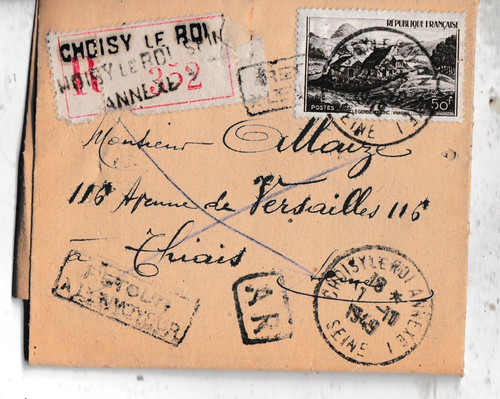 CHOISY LE ROI
CHOISY LE ROI SEINE
ANNEXE
R 352
RÉPUBLIQUE FRANÇAISE
POSTES
50F
SEINE
Monsieur
116 Avenue de Versailles 116
à Thiais
RETOUR
A L'ENVOYEUR
A R
CHOISY LE ROI ANNEXE 1
18
7 -10
1949
SEINE